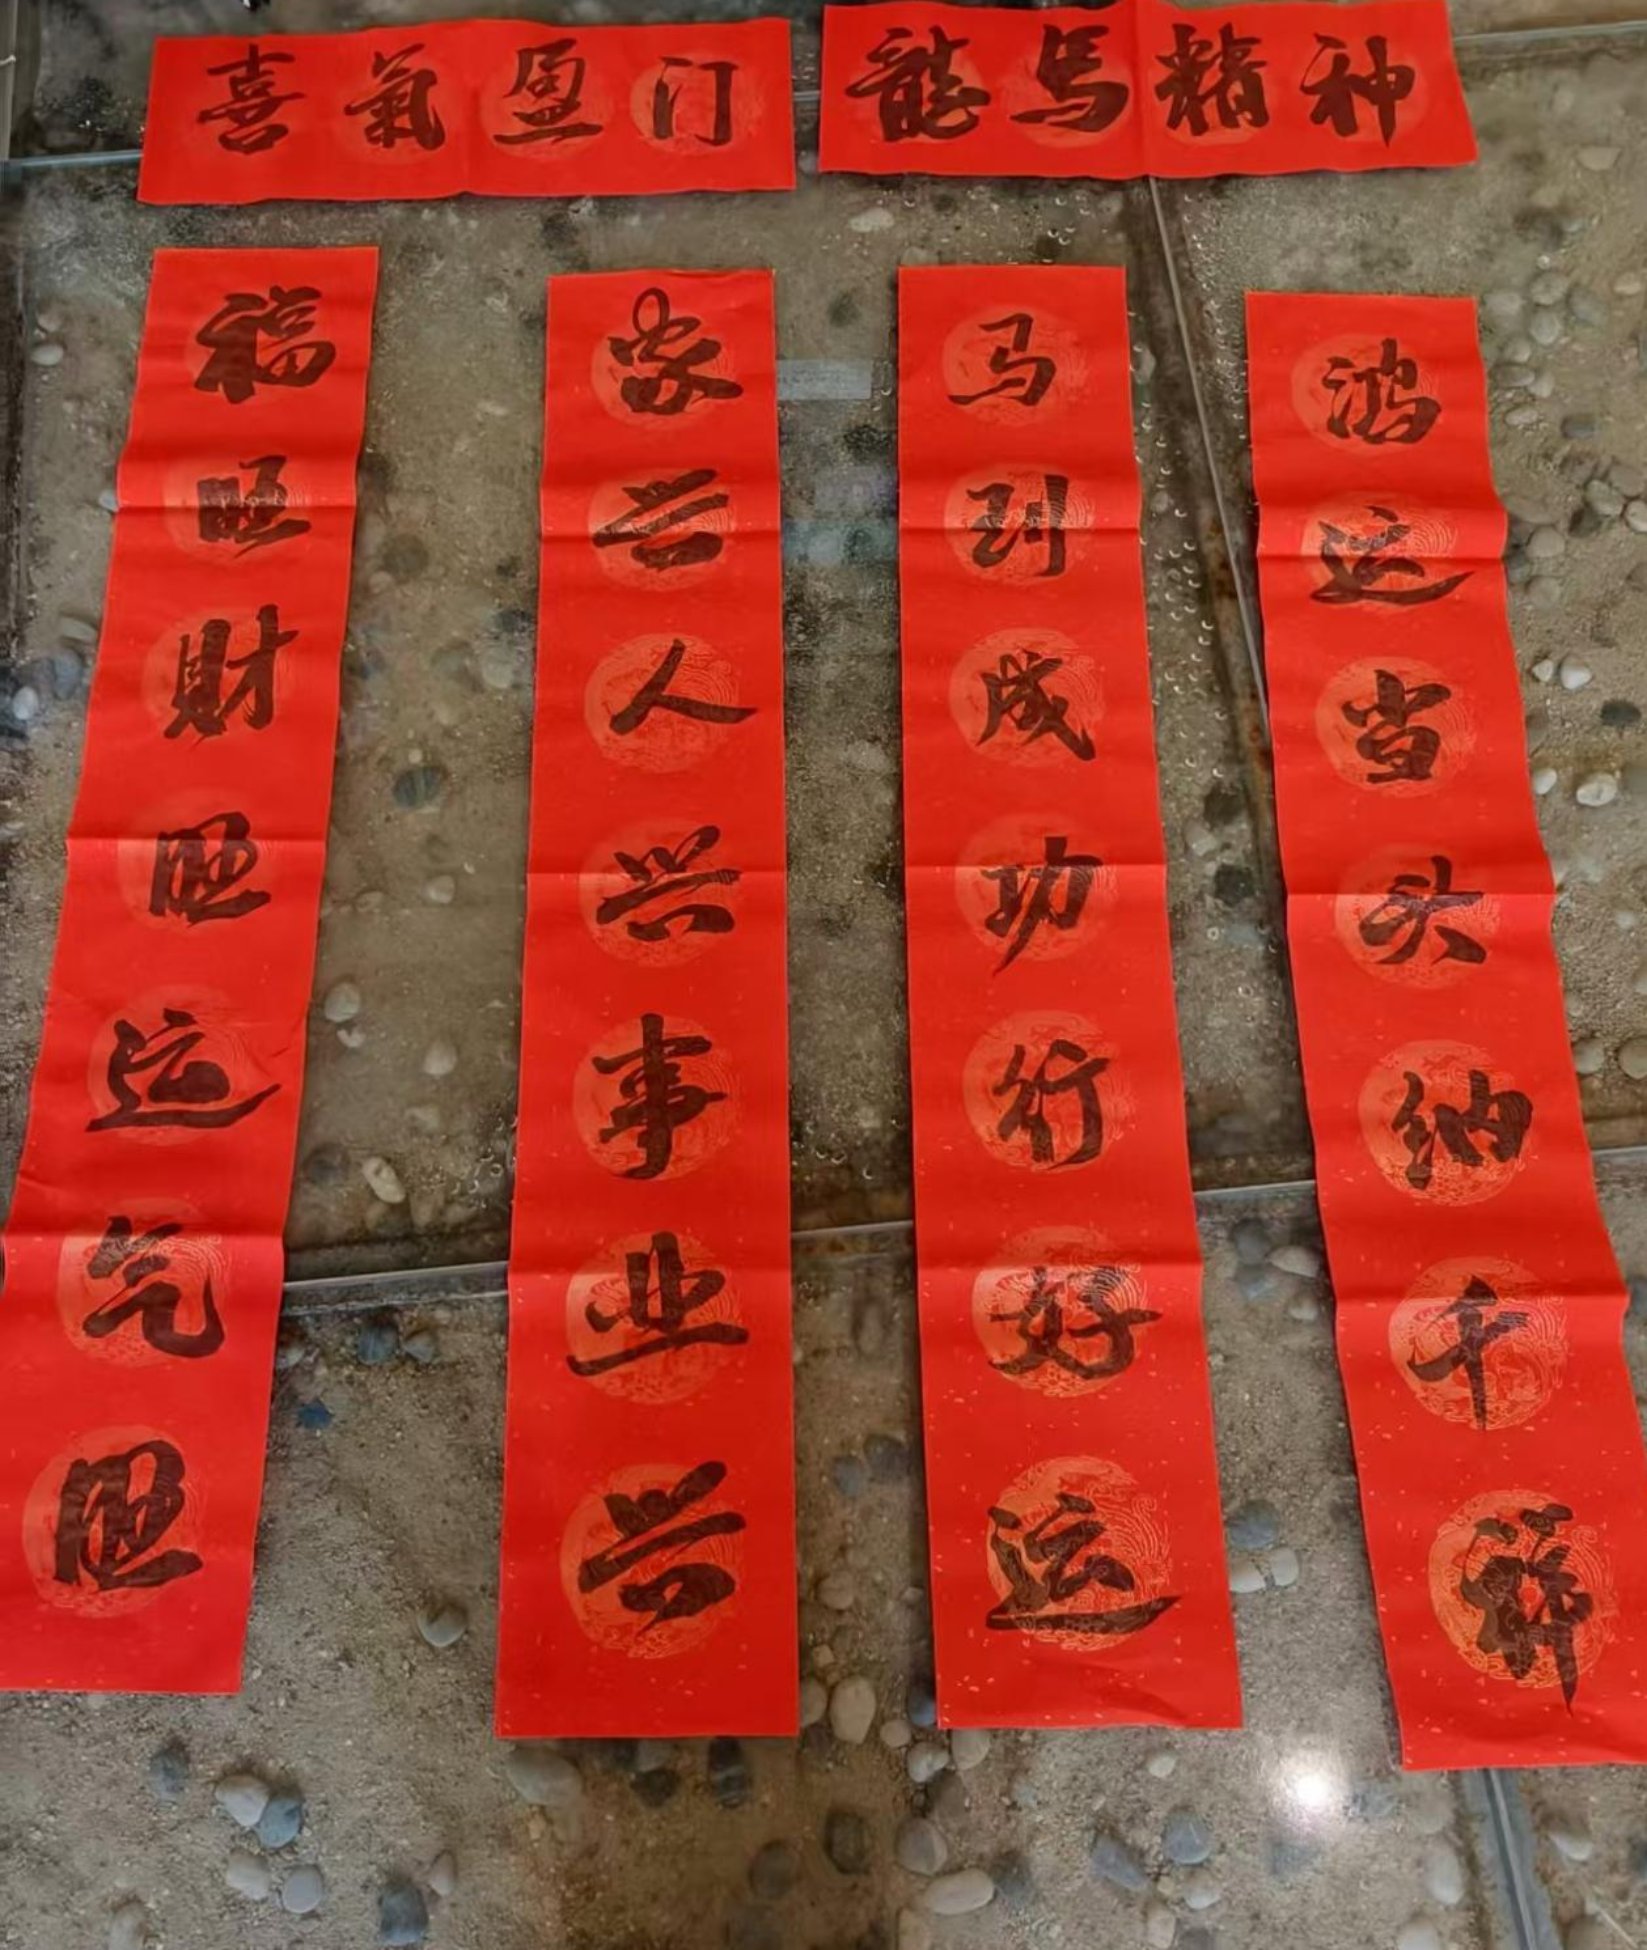 喜氣盈门
龍馬精神
福旺财旺运气旺
家兴人兴事业兴
马到成功行好运
鸿运当头纳千祥